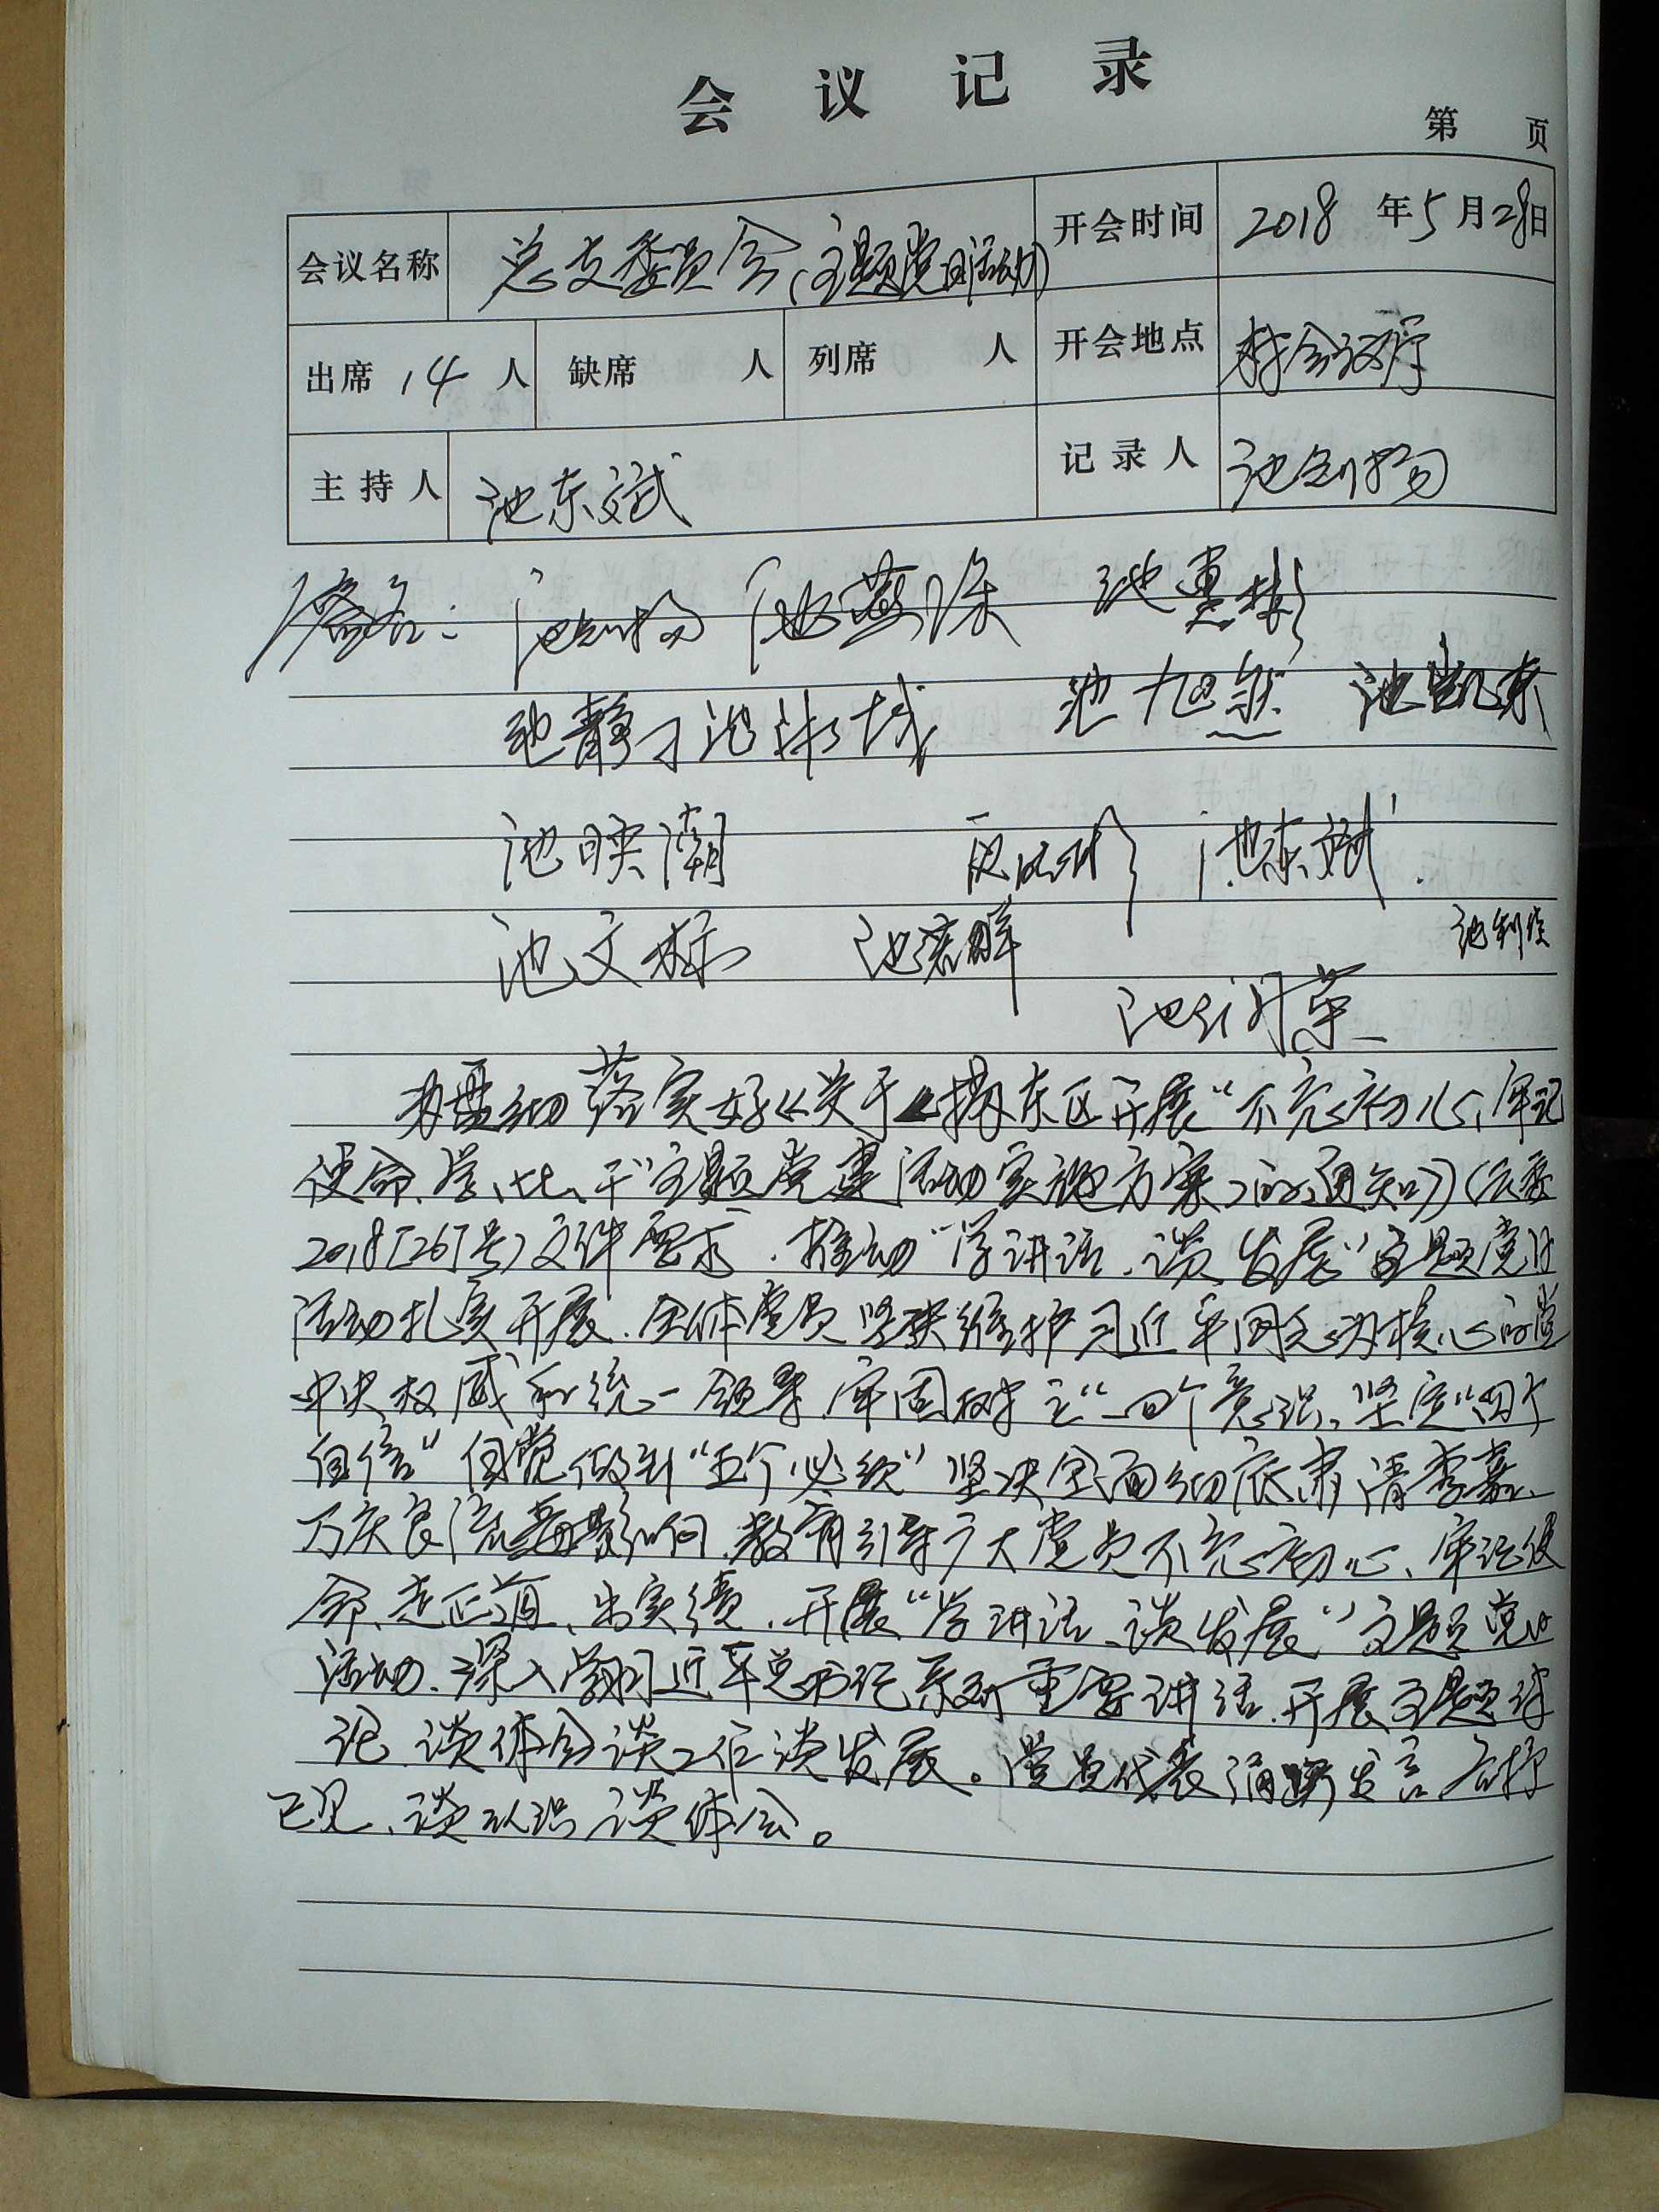 会议记录
第 页
会议名称 总支委员会（主题党日活动） 开会时间 2018 年 5 月 28 日
出席 14 人 缺席 人 列席 人 开会地点 村会议厅
主持人 池东斌 记录人 池剑扬
签名： 池剑扬 池燕 池惠彬
池静 池 城 池旭然 池凯东
池映潮 池东斌
池文标 池 辉 池
池 荣
为贯彻落实好《关于《揭东区开展“不忘初心、牢记
使命、学、比、干”主题党建活动实施方案》的通知》（
2018[26]号）文件要求，推动“学讲话、谈发展”主题党日
活动扎实开展，全体党员坚决维护习近平同志为核心的党
中央权威和统一领导，牢固树立“四个意识、坚定“四个
自信”自觉做到“五个必须”坚决全面彻底肃清李嘉、
万庆良流毒影响，教育引导广大党员不忘初心、牢记使
命、走正道、出实绩，开展“学讲话、谈发展”主题党日
活动，深入学习习近平总书记系列重要讲话，开展主题
谈体会谈工作谈发展。党员代表踊跃发言，各抒
己见、谈认识谈体会。